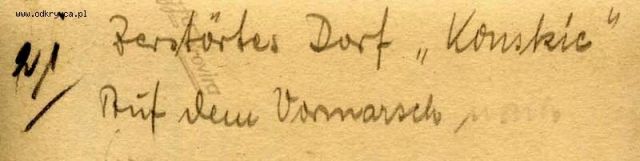 www.odkrywca.pl
Zerstörtes Dorf „Konskie“
Auf dem Vormarsch